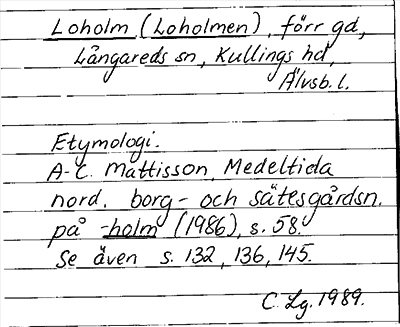 Loholm (Loholmen), förr gd,
Långareds sn, Kullings hd,
Älvsb. l.
Etymologi.
A-C. Mattisson, Medeltida
nord. borg- och sätesgårdsn.
på -holm (1986), s. 58.
Se även s. 132, 136, 145.
C. Lg. 1989.